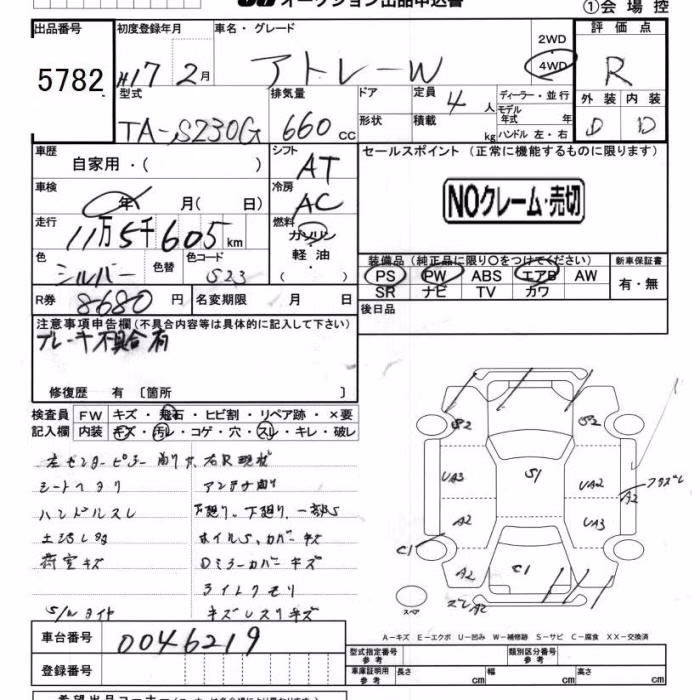 ①会場控
オークション出品申込書
出品番号 初度登録年月 車名・グレード 評価点
5782 H17 2月 アトレーW 2WD 4WD R
型式 排気量 ドア 定員 4人 ディーラー・並行 外装 内装
TA-S230G 660cc 形状 積載 kg モデル年式 年 D D
ハンドル 左・右
車歴 自家用・( ) シフト AT セールスポイント (正常に機能するものに限ります)
車検 年 月( 日) 冷房 AC NOクレーム・売切
走行 11万5千605km 燃料 ガソリン
軽油
( )
色 シルバー 色替 色コード S23
装備品(純正品に限り○をつけてください) 新車保証書
PS PW ABS エアB AW 有・無
SR ナビ TV カワ
R券 8680円 名変期限 月 日 後日品
注意事項申告欄(不具合内容等は具体的に記入して下さい)
ブレーキ不具合有
修復歴 有 〔箇所 〕
検査員 FW キズ・飛石・ヒビ割・リペア跡・×要
記入欄 内装 キズ・汚レ・コゲ・穴・スレ・キレ・破レ
左センターピラー
シートヘタリ アンテナ曲り
ハンドルスレ 下廻リ、一部S
ホイルS、カバーキズ
荷室キズ Dミラーカバーキズ
ライトクモリ
S/Wタイヤ
S2 S2
UA3 S1 UA2 A2
A2 UA3
C1 A2 C1
スペア A2
A−キズ E−エクボ U−凹み W−補修跡 S−サビ C−腐食 XX−交換済
車台番号 0046219
登録番号
型式指定番号 参考 類別区分番号 参考
車庫証明用 参考 長さ cm 幅 cm 高さ cm
希望出品コーナー